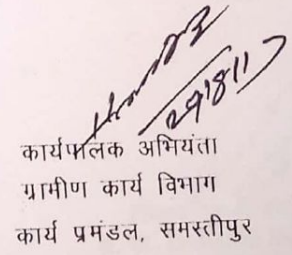 29/8/17
कार्यपालक अभियंता
ग्रामीण कार्य विभाग
कार्य प्रमंडल, समस्तीपुर